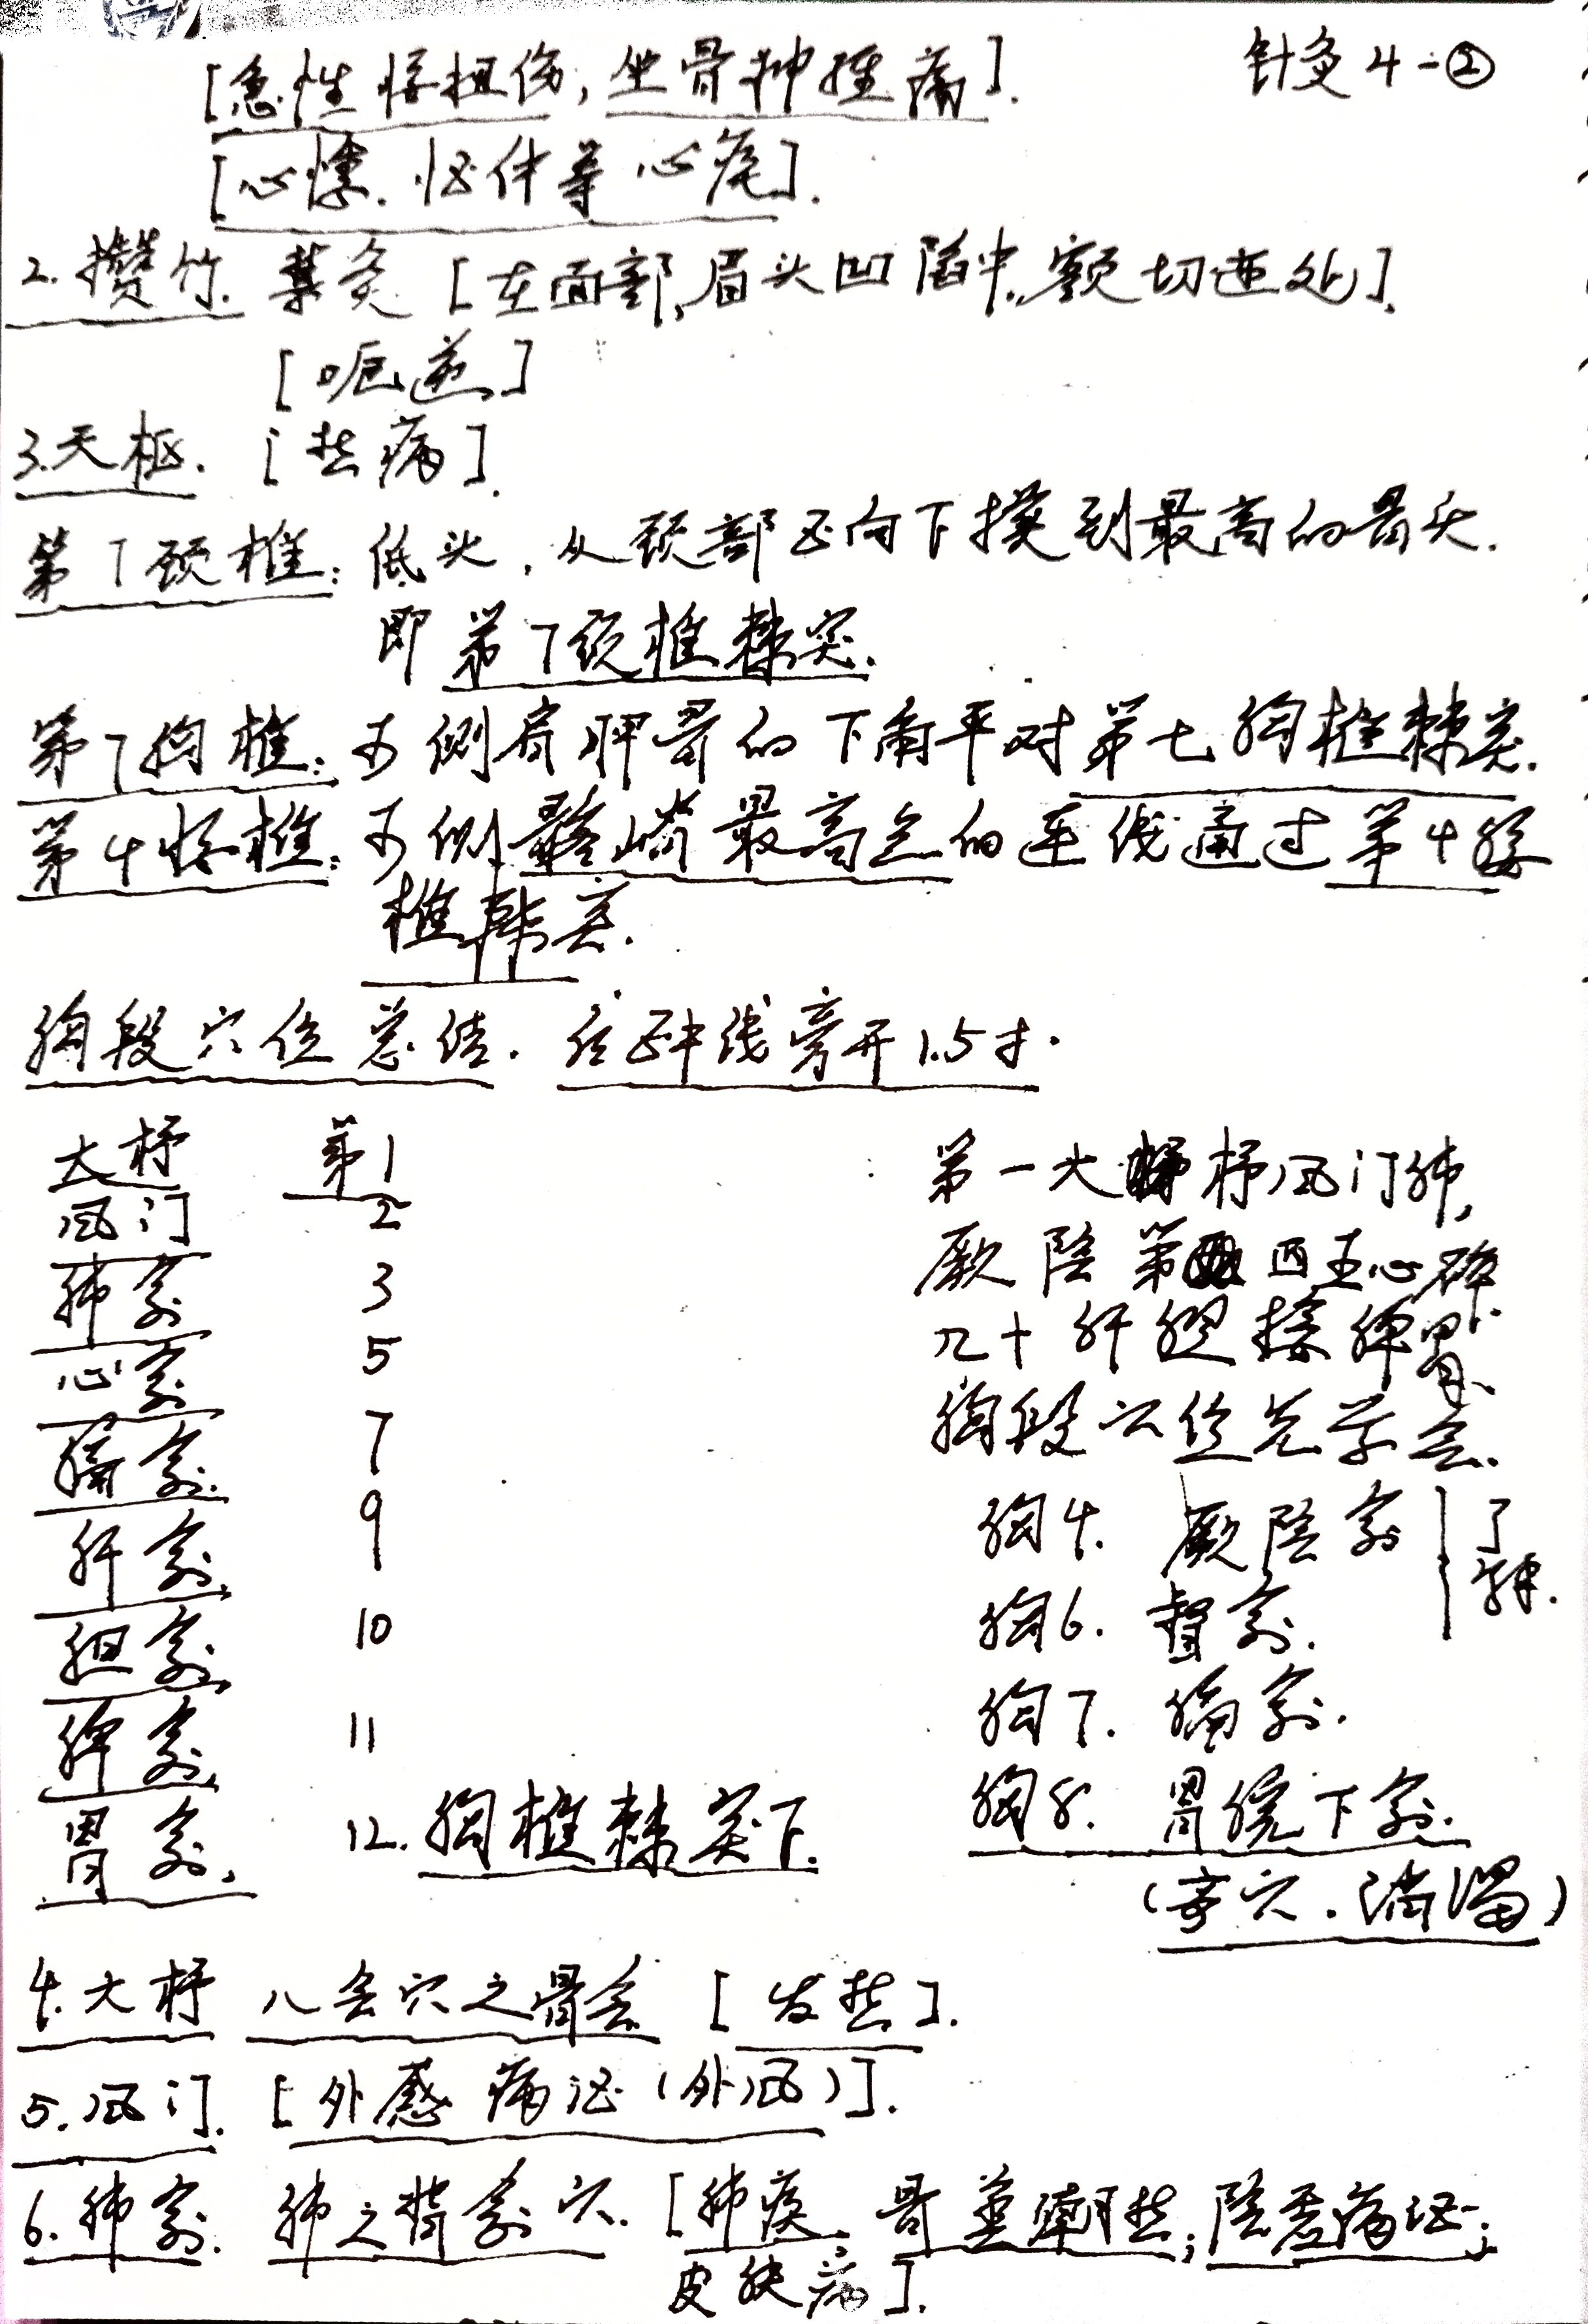 针灸4-②
[急性腰扭伤,坐骨神经痛].
[心悸.怔忡等心疾].
2.攒竹.禁灸[在面部,眉头凹陷中,额切迹处].
[呃逆]
3.天柱.[热病].
第7颈椎:低头,从颈部正向下摸到最高的骨头.
即第7颈椎棘突.
第7胸椎:两侧肩胛骨的下角平对第七胸椎棘突.
第4腰椎:两侧髂嵴最高点的连线通过第4腰
椎棘突.
胸段穴位总结.后正中线旁开1.5寸.
大杼 第1
风门 2
肺俞 3
心俞 5
膈俞. 7
肝俞. 9
胆俞. 10
脾俞. 11
胃俞. 12.胸椎棘突下.
第一大杼风门肺,
厥阴第四五心碎.
九十肝胆接脾胃.
胸段穴位先学会.
胸4. 厥阴俞
胸6. 督俞.
了解.
胸7. 膈俞.
胸8. 胃脘下俞.
(奇穴.消渴)
4.大杼 八会穴之骨会 [发热].
5.风门. [外感病证(外风)].
6.肺俞. 肺之背俞穴.[肺疾、骨蒸潮热;阴虚病证;
皮肤病].